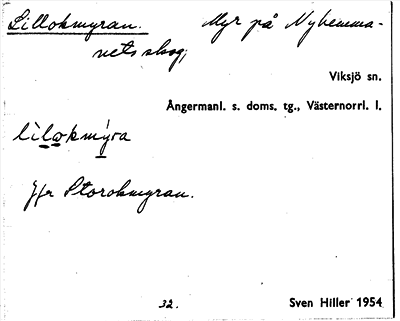 Lillokmyran. Myr på Nyhemma-
nets skog;
Viksjö sn.
Ångermanl. s. doms. tg., Västernorrl. l.
lìlo̲kmýra
Jfr Storokmyran.
32. Sven Hiller 1954